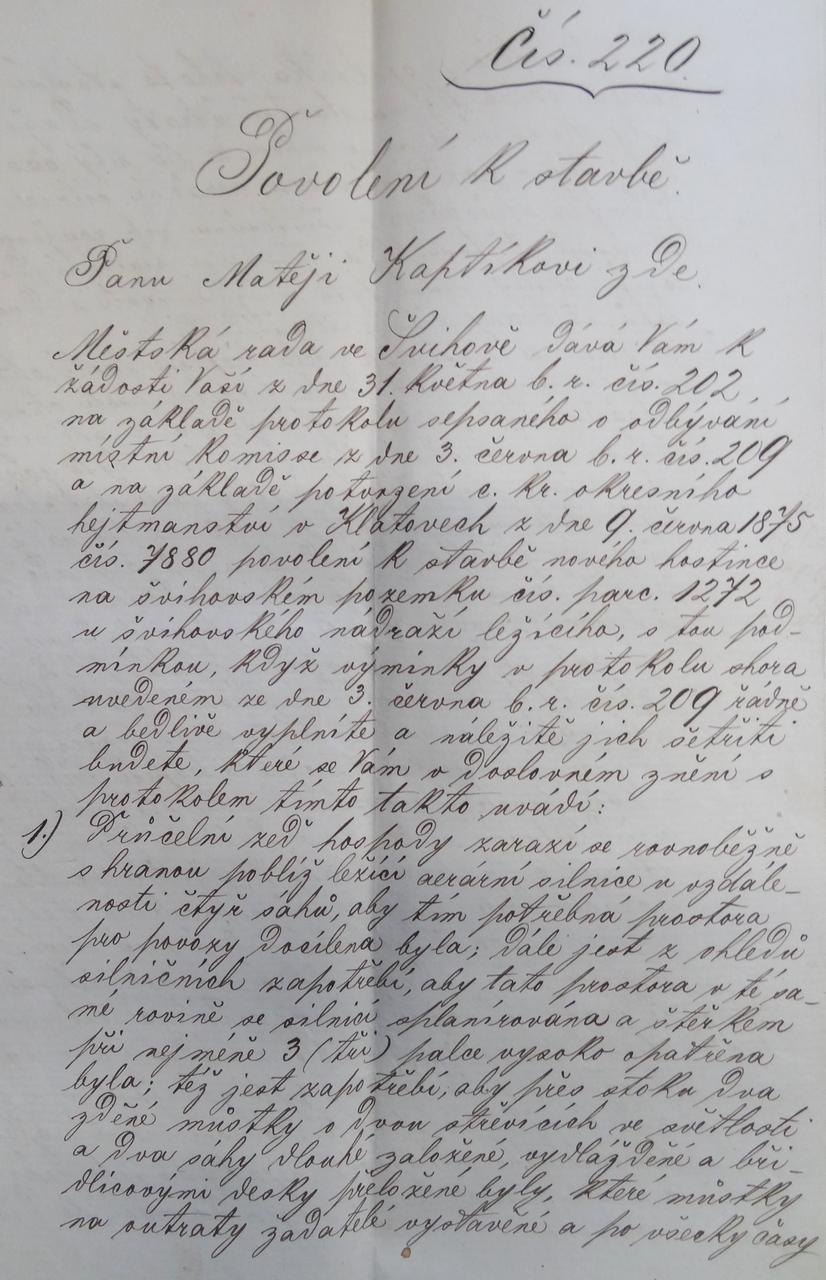 Čís. 220.
Povolení k stavbě.
Panu Matěji Kaptíkovi zde.
Městská rada ve Švihově dává Vám k
žádosti Vaší z dne 31. května b. r. čís. 202
na základě protokolu sepsaného o odbývání
místní komisse z dne 3. června b. r. čís. 209
a na základě potvrzení c. kr. okresního
hejtmanství v Klatovech z dne 9. června 1875
čís. 7880 povolení k stavbě nového hostince
na švihovském pozemku čís. parc. 1272
u švihovského nádraží ležícího, s tou pod-
mínkou, když výminky v protokolu shora
uvedeném ze dne 3. června b. r. čís. 209 řádně
a bedlivě vyplníte a náležitě jich šetřiti
budete, které se Vám v doslovném znění s
protokolem tímto takto uvádí:
1.) Průčelní zeď hospody zarazí se rovnoběžně
s hranou poblíž ležící aerární silnice u vzdále-
nosti čtyř sáhů, aby tím potřebná prostora
pro povozy docílena byla; dále jest z ohledů
silničních zapotřebí, aby tato prostora v té sa-
mé rovině se silnicí splanírována a štěrkem
při nejméně 3 (tři) palce vysoko opatřena
byla; též jest zapotřebí, aby přes stoku dva
zděné můstky o dvou střevících ve světlosti
a dva sáhy dlouhé založené, vydlážděné a bři-
dlicovými desky přeložené byly, které můstky
na outraty žadatelé vystavěné a po všecky časy